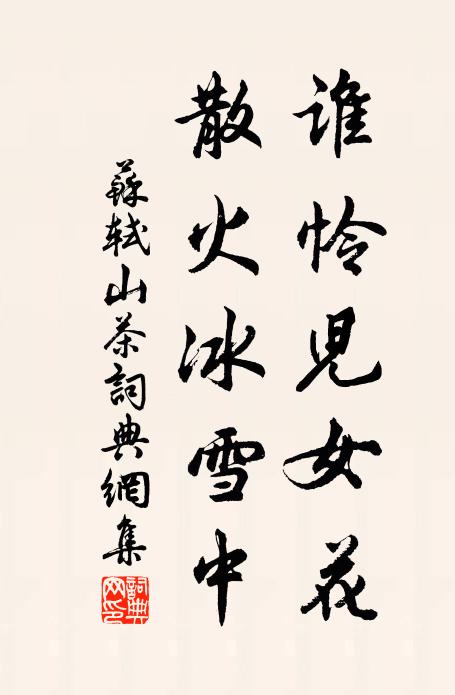 誰怜兒女花
散火冰雪中
蘇軾山茶詞典網集
詞典網印